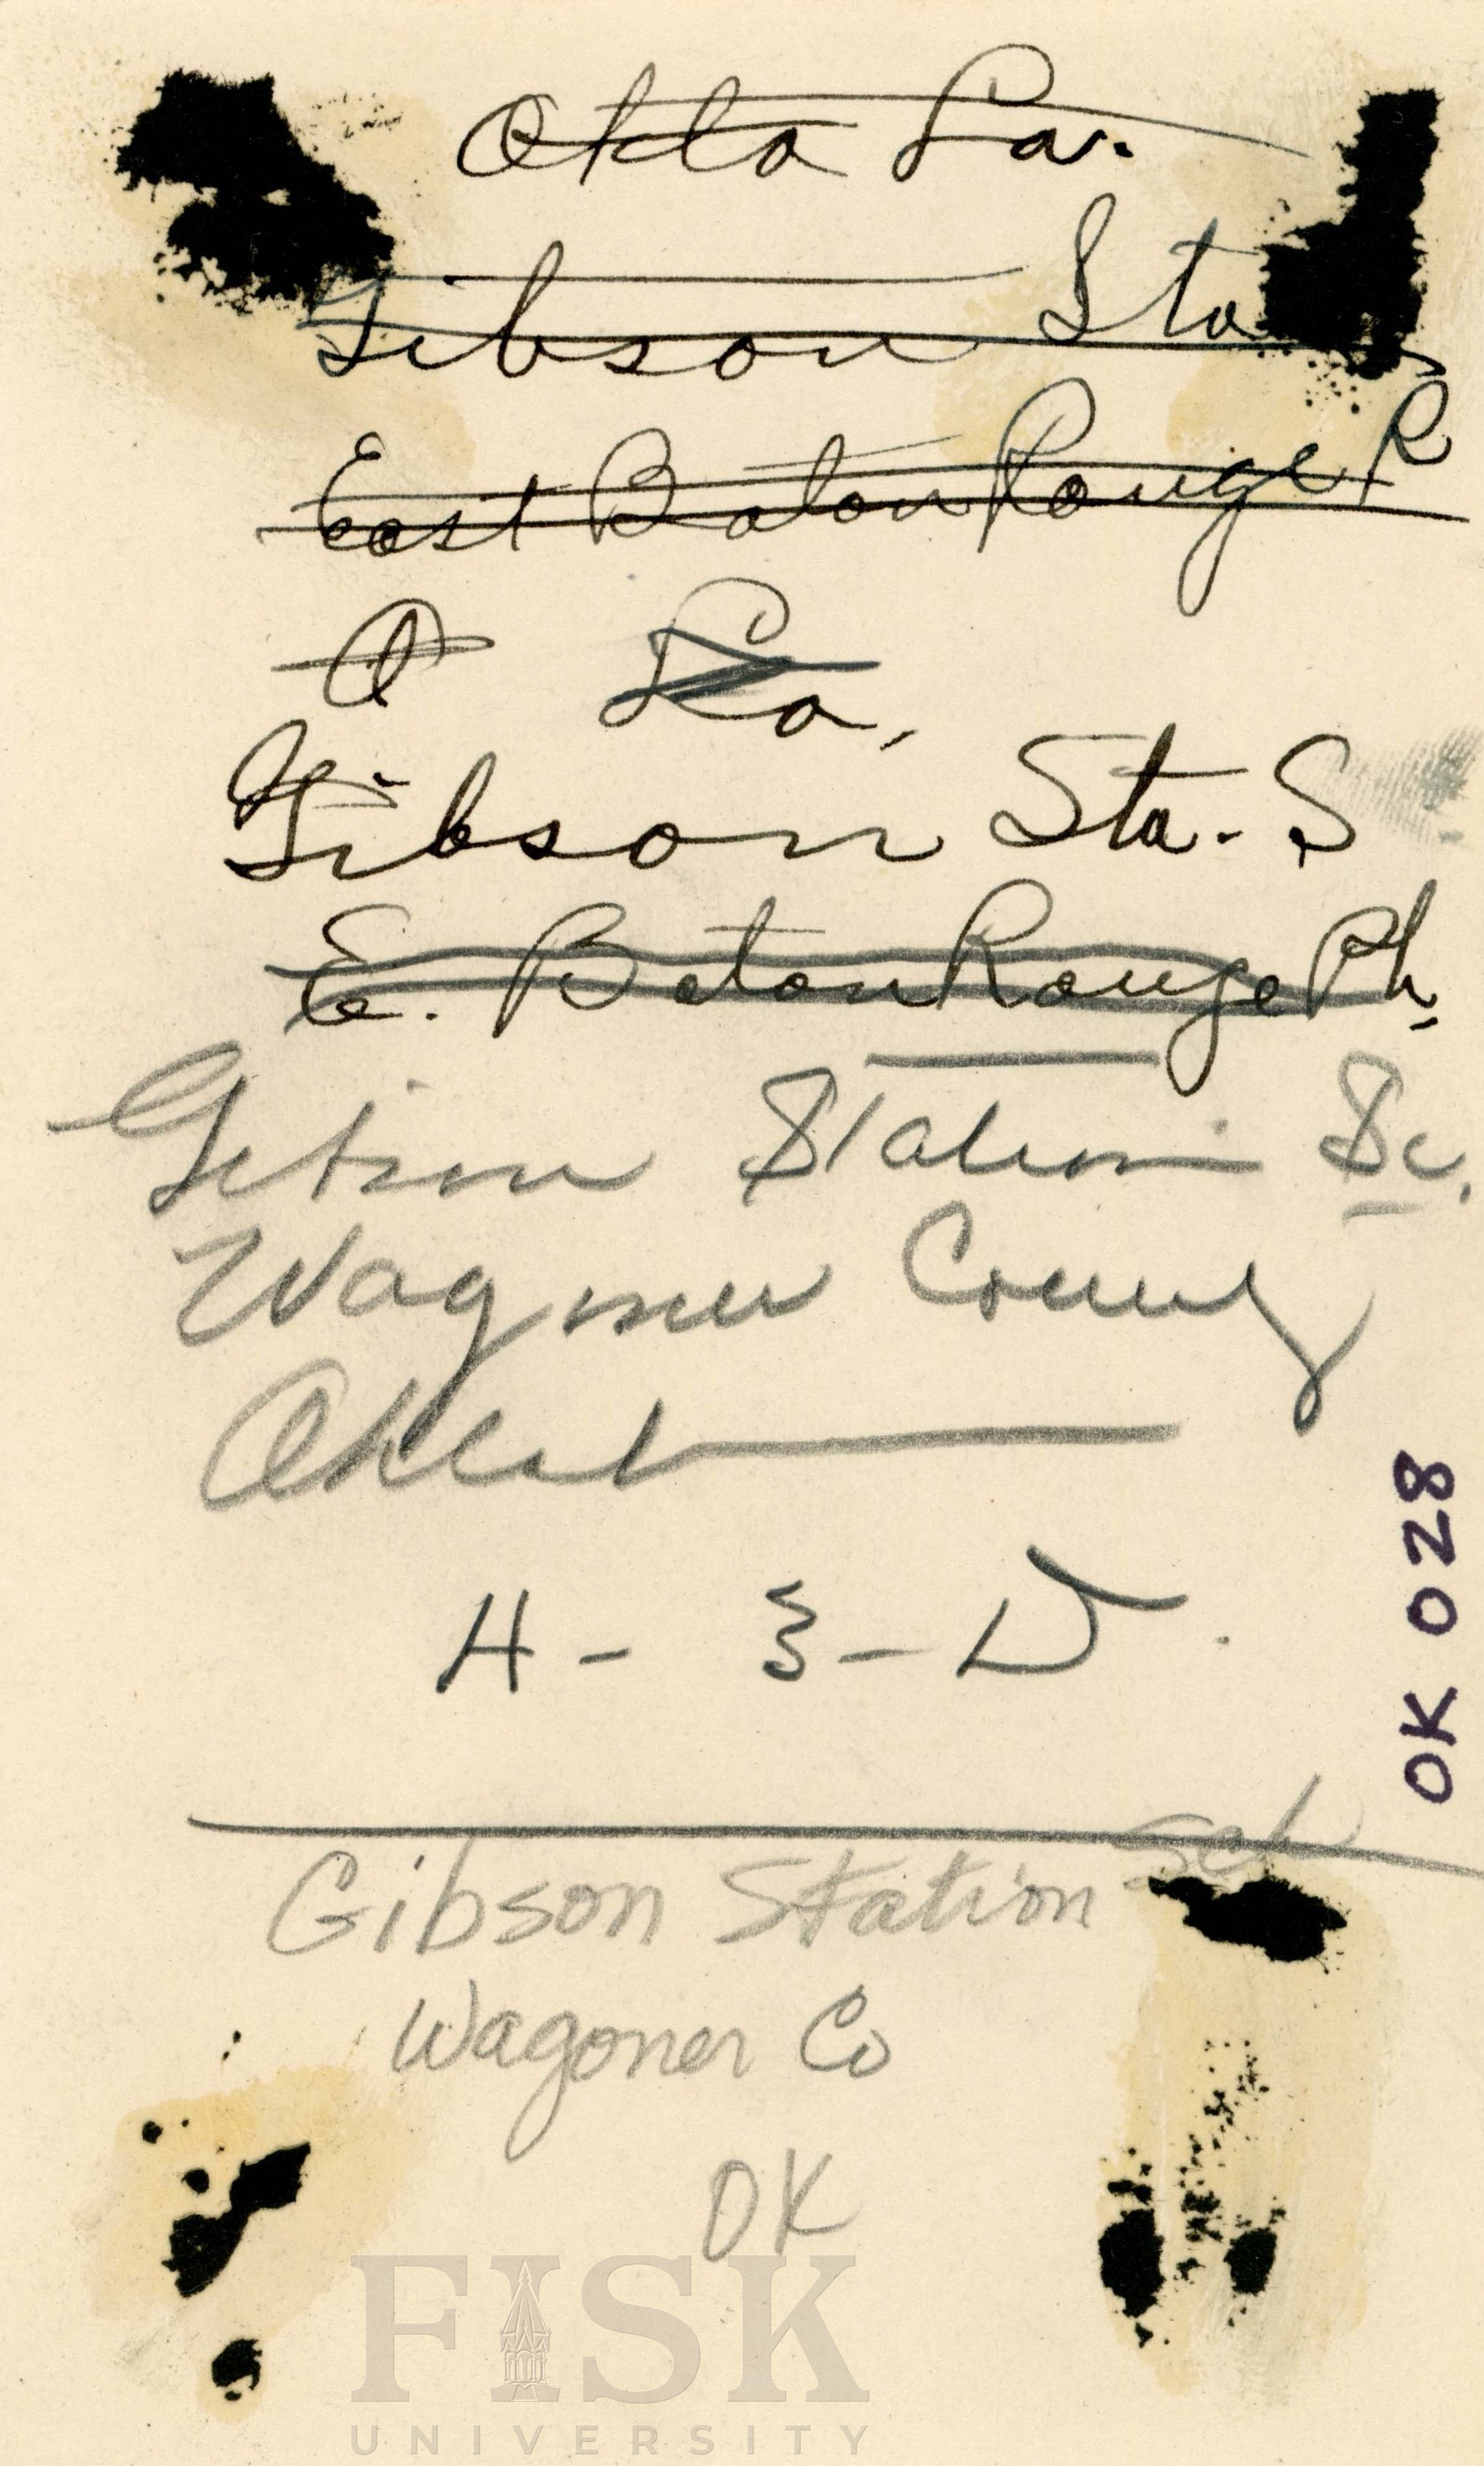 Okla La.
Gibson Sta
East Baton Rouge P
O La,
Gibson Sta. S
E. Baton Rouge Ph.
Gibson Station Sc.
Wagoner County
H - 3 - W.
OK 028
Sch
Gibson Station
Wagoner Co
OK
FISK
UNIVERSITY